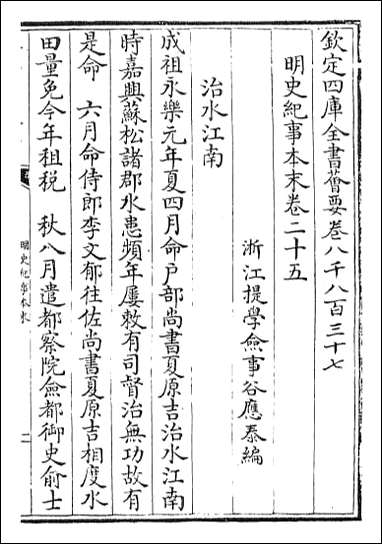 欽定四庫全書薈要卷八千八百三十七
明史紀事本末卷二十五
浙江提學僉事谷應泰編
治水江南
成祖永樂元年夏四月命戶部尚書夏原吉治水江南
時嘉興蘇松諸郡水患頻年屢敕有司督治無功故有
是命　六月命侍郎李文郁往佐尚書夏原吉相度水
田量免今年租稅　秋八月遣都察院僉都御史俞士
明史紀事本末